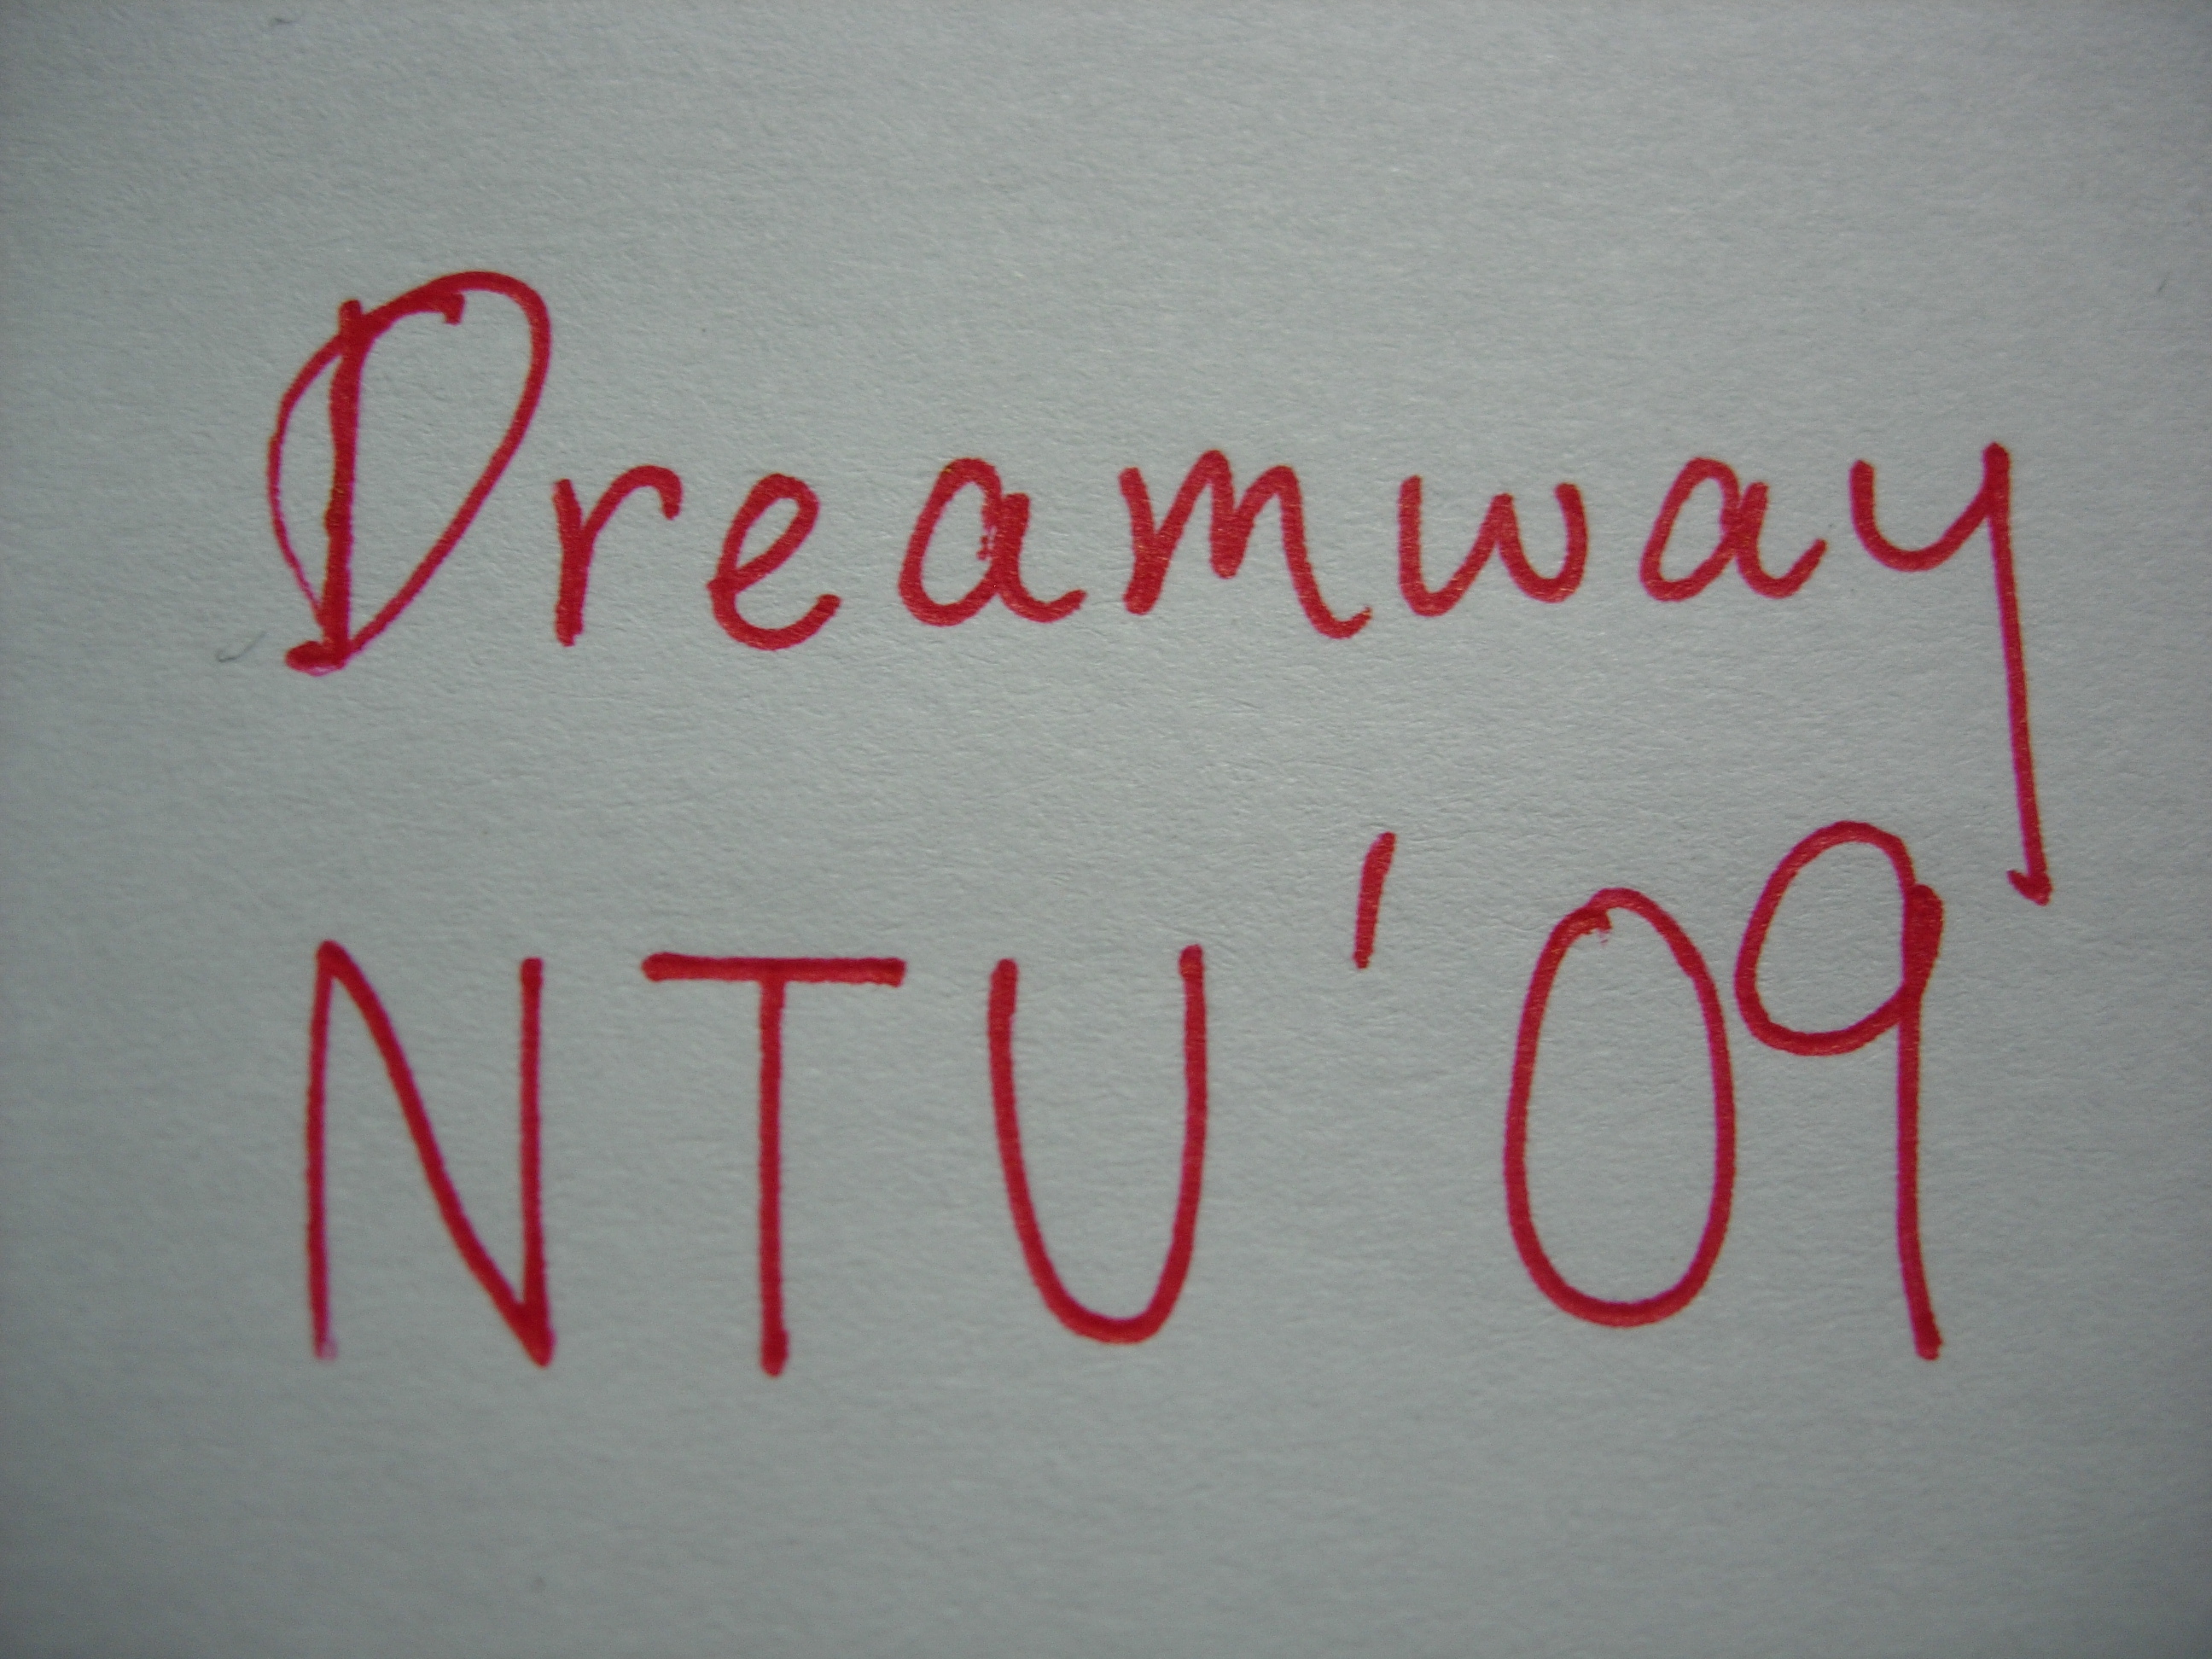 Dreamway
NTU '09